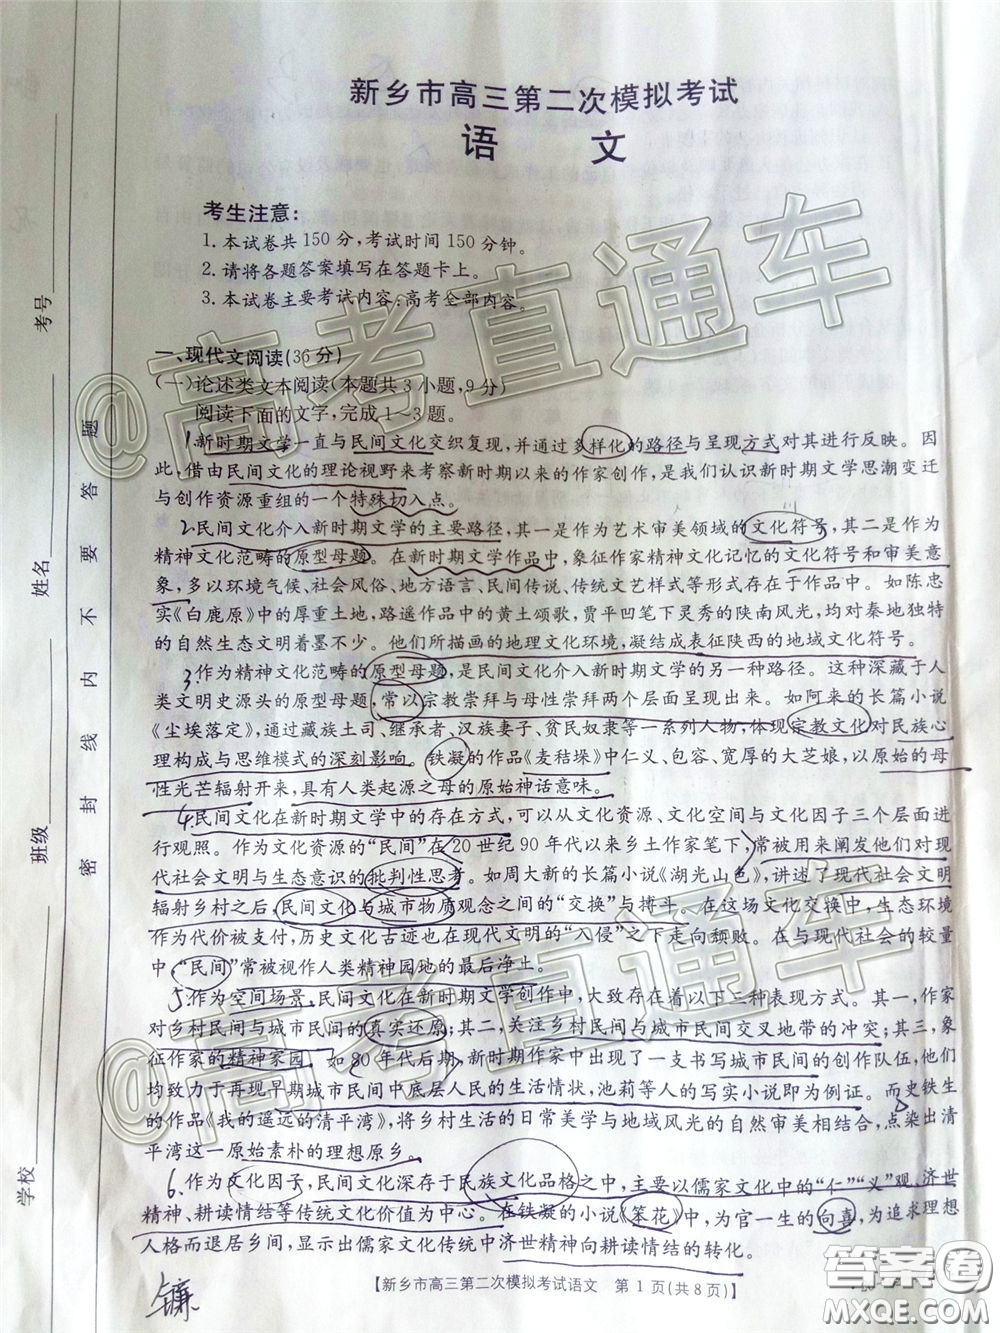 新乡市高三第二次模拟考试
语 文
考生注意:
1. 本试卷共150分,考试时间150分钟。
2. 请将各题答案填写在答题卡上。
3. 本试卷主要考试内容:高考全部内容。
一、现代文阅读(36分)
(一)论述类文本阅读(本题共3小题,9分)
阅读下面的文字,完成1~3题。
1 新时期文学一直与民间文化交织复现,并通过多样化的路径与呈现方式对其进行反映。因
此,借由民间文化的理论视野来考察新时期以来的作家创作,是我们认识新时期文学思潮变迁
与创作资源重组的一个特殊切入点。
2 民间文化介入新时期文学的主要路径,其一是作为艺术审美领域的文化符号,其二是作为
精神文化范畴的原型母题。在新时期文学作品中,象征作家精神文化记忆的文化符号和审美意
象,多以环境气候、社会风俗、地方语言、民间传说、传统文艺样式等形式存在于作品中。如陈忠
实《白鹿原》中的厚重土地,路遥作品中的黄土颂歌,贾平凹笔下灵秀的陕南风光,均对秦地独特
的自然生态文明着墨不少。他们所描画的地理文化环境,凝结成表征陕西的地域文化符号。
3 作为精神文化范畴的原型母题,是民间文化介入新时期文学的另一种路径。这种深藏于人
类文明史源头的原型母题,常以宗教崇拜与母性崇拜两个层面呈现出来。如阿来的长篇小说
《尘埃落定》,通过藏族土司、继承者、汉族妻子、贫民奴隶等一系列人物,体现宗教文化对民族心
理构成与思维模式的深刻影响。铁凝的作品《麦秸垛》中仁义、包容、宽厚的大芝娘,以原始的母
性光芒辐射开来,具有人类起源之母的原始神话意味。
4 民间文化在新时期文学中的存在方式,可以从文化资源、文化空间与文化因子三个层面进
行观照。作为文化资源的“民间”在20世纪90年代以来乡土作家笔下,常被用来阐发他们对现
代社会文明与生态意识的批判性思考。如周大新的长篇小说《湖光山色》,讲述了现代社会文明
辐射乡村之后,民间文化与城市物质观念之间的“交换”与搏斗。在这场文化交换中,生态环境
作为代价被支付,历史文化古迹也在现代文明的“入侵”之下走向颓败。在与现代社会的较量
中,“民间”常被视作人类精神园地的最后净土。
5 作为空间场景,民间文化在新时期文学创作中,大致存在着以下三种表现方式。其一,作家
对乡村民间与城市民间的真实还原;其二,关注乡村民间与城市民间交叉地带的冲突;其三,象
征作家的精神家园。如80年代后期,新时期作家中出现了一支书写城市民间的创作队伍,他们
均致力于再现早期城市民间中底层人民的生活情状,池莉等人的写实小说即为例证。而史铁生
的作品《我的遥远的清平湾》,将乡村生活的日常美学与地域风光的自然审美相结合,点染出清
平湾这一原始素朴的理想原乡。
6 作为文化因子,民间文化深存于民族文化品格之中,主要以儒家文化中的“仁”“义”观、济世
精神、耕读情结等传统文化价值为中心。在铁凝的小说《笨花》中,为官一生的向喜,为追求理想
人格而退居乡间,显示出儒家文化传统中济世精神向耕读情结的转化。
【新乡市高三第二次模拟考试语文 第1页(共8页)】
学校
班级
姓名
考号
密 封 线 内 不 要 答 题
@高考直通车
@高考直通车
答案圈
MXQE.COM